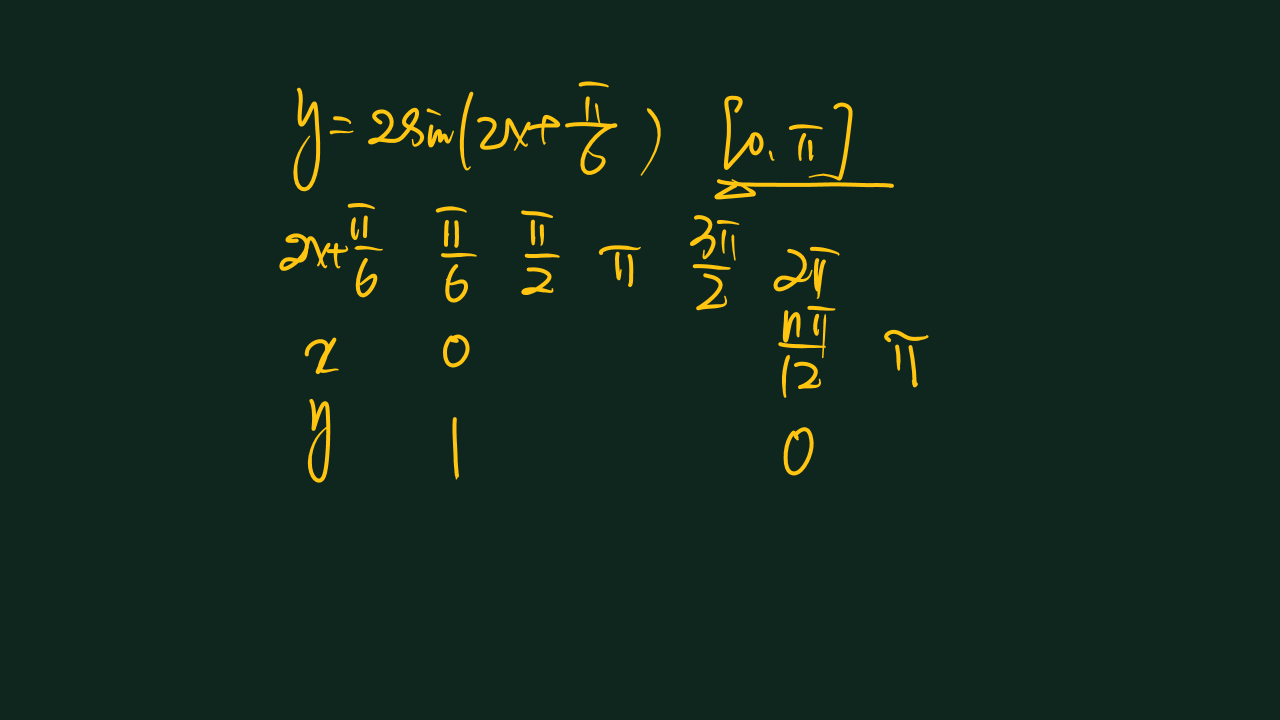 y = 2sin(2x+π/6) [0, π]
2x+π/6 π/6 π/2 π 3π/2 2π
x 0 11π/12 π
y 1 0